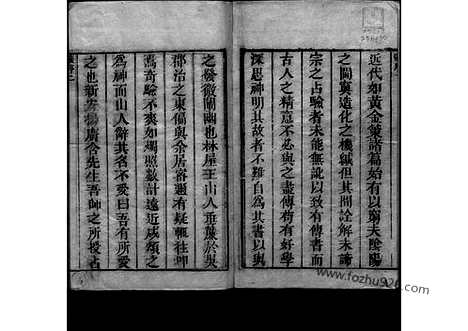 近代如黃金策諸篇始有以窮夫陰陽
之閫奧造化之機緘但其間詮解未諦
宗之占驗者未能無訛以致有傳書而
古人之精意不必與之盡傳苟有好學
深思神明其故者不難自為其書以與
之發微闡幽也林屋王山人垂簾於吳
郡治之東偏與余居密邇有疑輒往叩
焉奇驗不爽如燭照數計遠近咸頌之
為神而山人辭其名不受曰吾有所受
之也新安楊廣含先生吾師之所授占
www.fozhu920.com